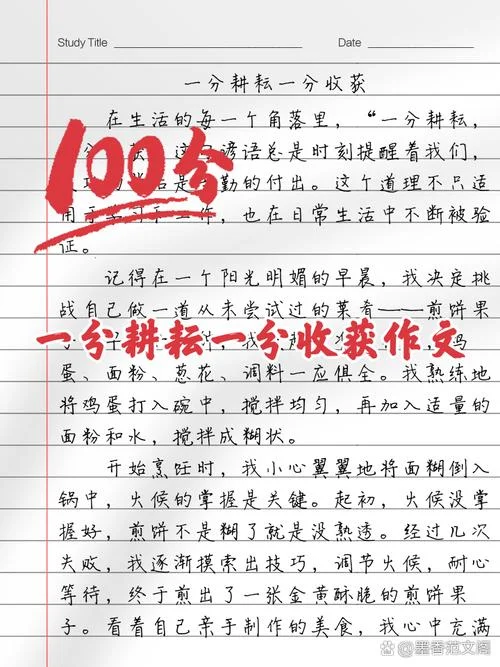 Study Title
Date
一分耕耘一分收获
在生活的每一个角落里，“一分耕耘，
100分
谚语总是时刻提醒着我们，
勤的付出。这个道理不只适
用于学习和工作，也在日常生活中不断被验
证。
记得在一个阳光明媚的早晨，我决定挑
战自己做一道从未尝试过的菜肴——煎饼果
一分耕耘一分收获作文
蛋、面粉、葱花、调料一应俱全。我熟练地
将鸡蛋打入碗中，搅拌均匀，再加入适量的
面粉和水，搅拌成糊状。
开始烹饪时，我小心翼翼地将面糊倒入
锅中，火候的掌握是关键。起初，火候没掌
握好，煎饼不是糊了就是没熟透。经过几次
失败，我逐渐摸索出技巧，调节火候，耐心
等待，终于煎出了一张金黄酥脆的煎饼果
子。看着自己亲手制作的美食，我心中充满
墨香范文阁